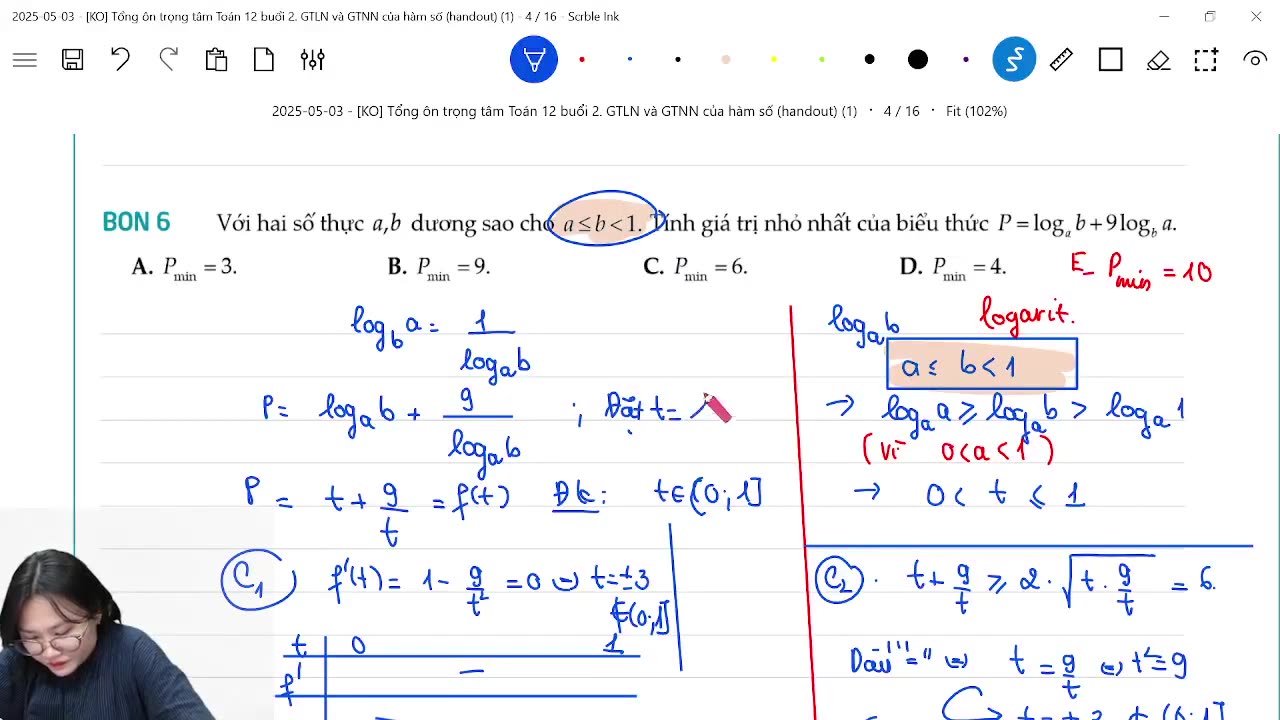 2025-05-03 - [KO] Tổng ôn trọng tâm Toán 12 buổi 2. GTLN và GTNN của hàm số (handout) (1) - 4 / 16 - Scrble Ink
2025-05-03 - [KO] Tổng ôn trọng tâm Toán 12 buổi 2. GTLN và GTNN của hàm số (handout) (1) · 4 / 16 · Fit (102%)
BON 6 Với hai số thực a,b dương sao cho a ≤ b < 1. Tính giá trị nhỏ nhất của biểu thức P = log_a b + 9 log_b a.
A. P_min = 3. B. P_min = 9. C. P_min = 6. D. P_min = 4. E_ P_min = 10
log_b a = 1/log_a b
P = log_a b + 9/log_a b ; Đặt t =
P = t + 9/t = f(t) Đk: t ∈ (0; 1]
C1 f'(t) = 1 - 9/t² = 0 ⇔ t = ±3
∉ (0;1]
t 0 1
f' −
log_a b logarit.
a ≤ b < 1
→ log_a a ≥ log_a b > log_a 1
(vì 0 < a < 1)
→ 0 < t ≤ 1
C2 . t + 9/t ≥ 2 · √(t · 9/t) = 6.
Dấu "=" ⇔ t = 9/t ⇔ t² = 9